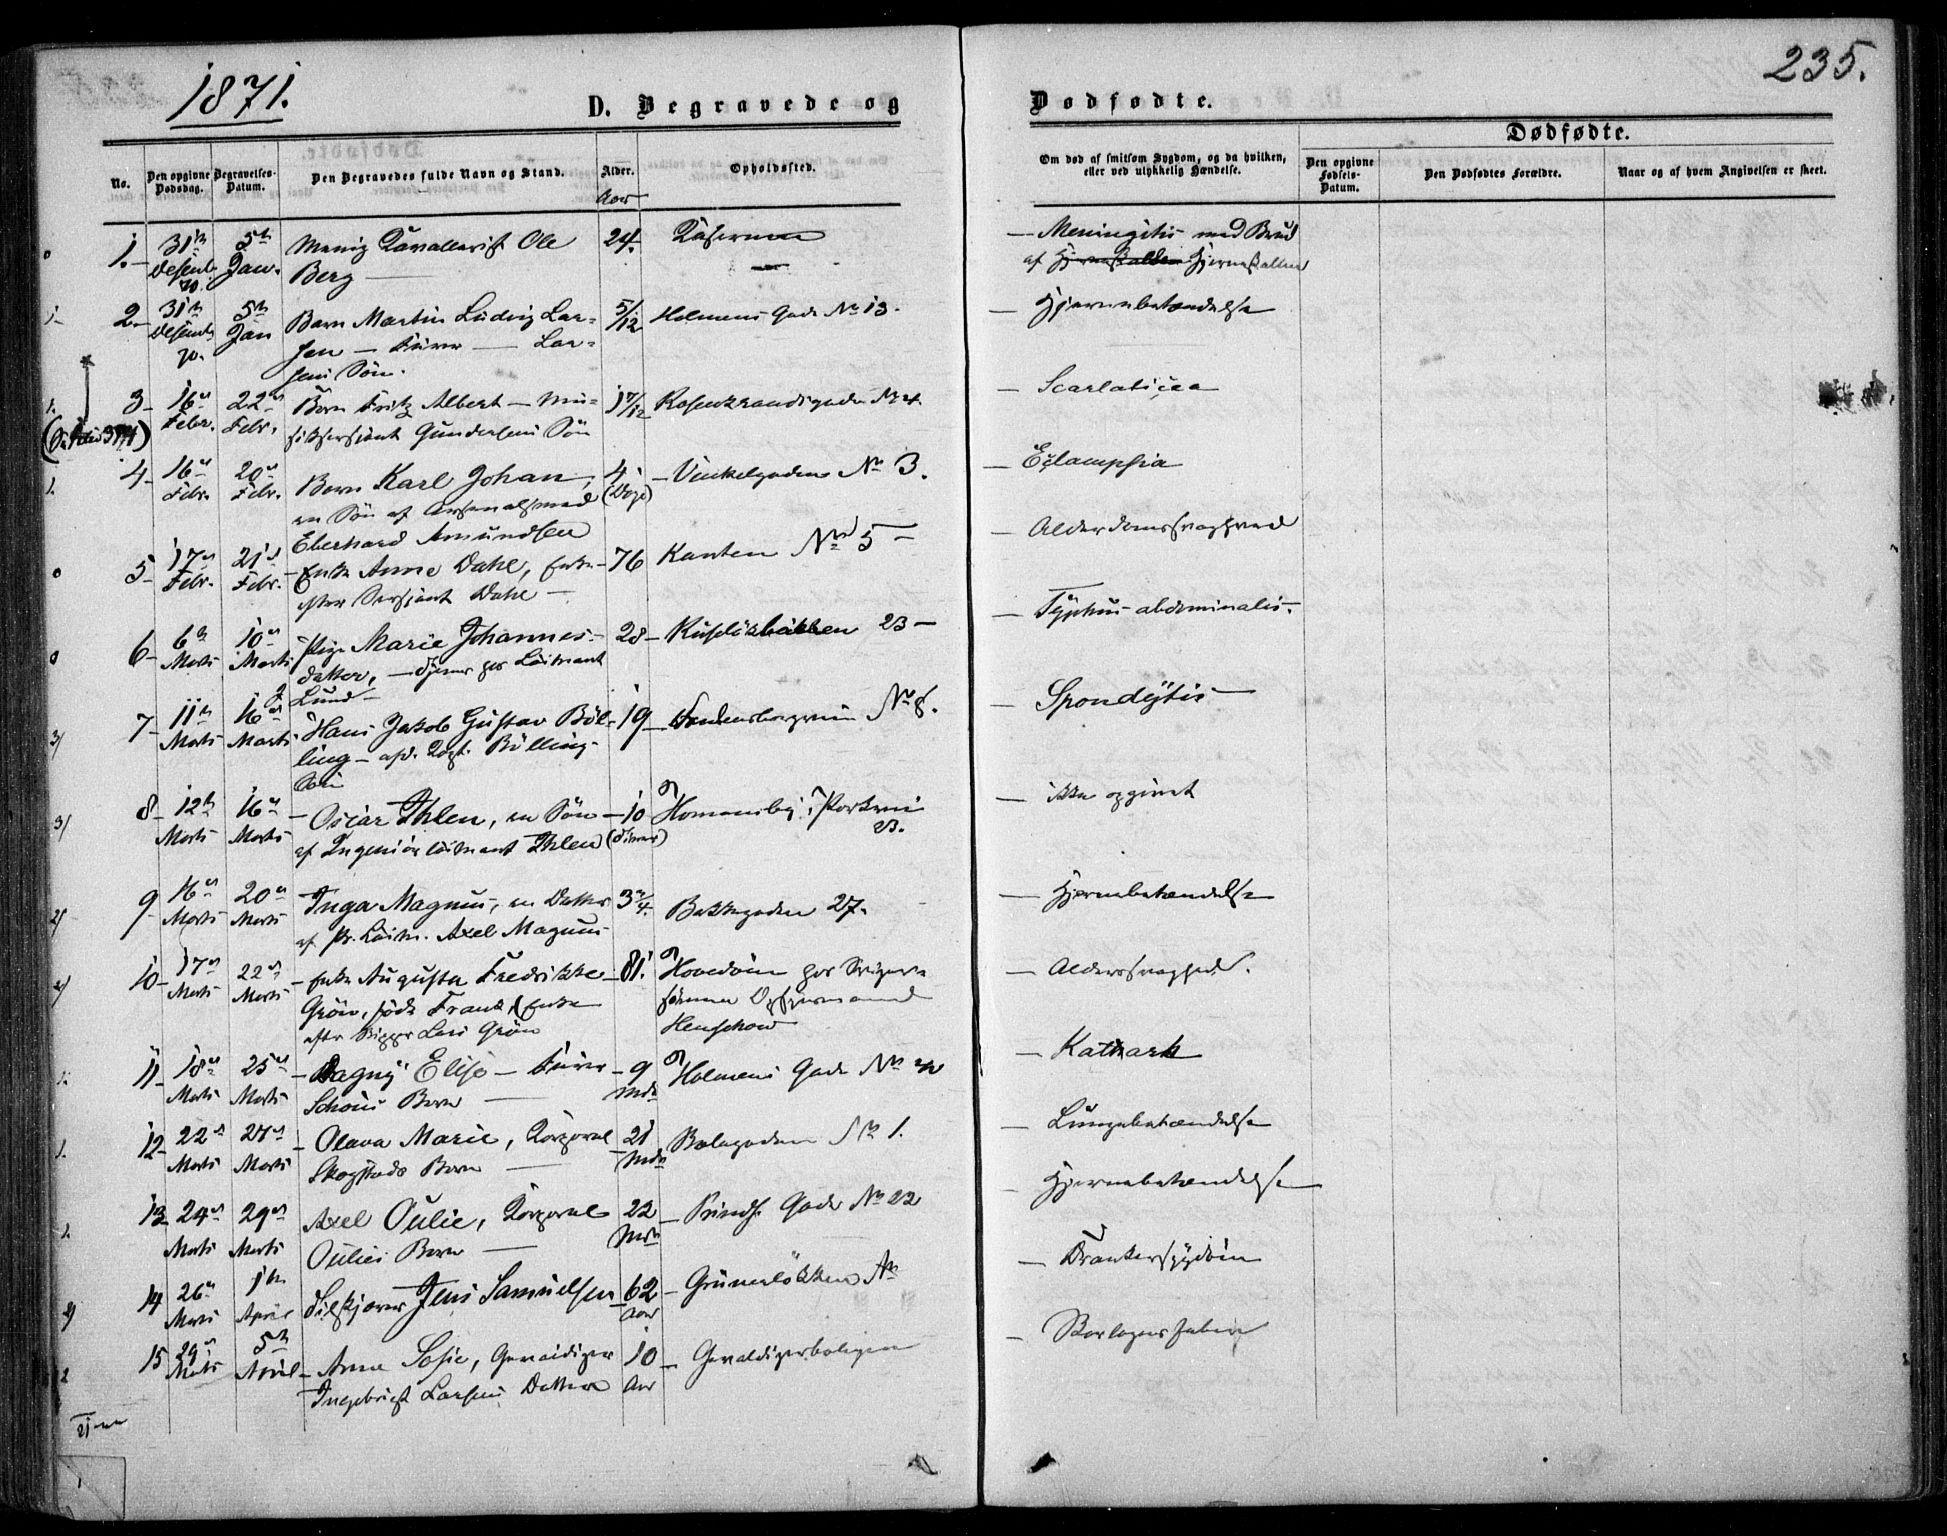 1871.
235.
D. Begravede og
Dødfødte.
Dødfødte.
No.
Den opgivne Dødsdag.
Begravelses-Datum.
Den Begravedes fulde Navn og Stand.
Alder.
Aar
Opholdssted.
Om død af smitsom Sygdom, og da hvilken, eller ved ulykkelig Hændelse.
Den opgivne Fødsels-Datum.
Den Dødfødtes Forældre.
Naar og af hvem Angivelsen er skeet.
1. 31te 5te Menig Kavallerist Ole 24. Kasernen — Meningitis med Brud
Desemb. 70. Jan. Berg — af Hjerneskallen
2. 31te 5te Barn Martin Ludvig Lar- 5/12 Holmens Gade No 13. — Hjernebetændelse
Desemb. 70. Jan sen — Furer — Lar-
sens Søn.
3 16de 22de Barn Fritz Albert — Mu- 1 7/12 Rosenkrandsgaden No 4. — Scarlatina
Febr. Febr. siksersjant Gundersens Søn
4 16de 20de Barn Karl Johan, 4 — Vinkelgaden No 3. — Eclampsia
Febr. Febr. en Søn af Arsenalsmed (Dage)
Eberhard Amundsen
5 17de 21de Enke Anna Dahl, Enke 76 Kanten No 5 — — Alderdomssvaghed
Febr. Febr. efter Sersjant Dahl —
6 6te 10de Pige Marie Johannes- 28 — Ruseløkbakken 23 — — Typhus abdominalis.
Marts Marts datter, — tjener hos Løitnant
Lund —
7 11te 16de Hans Jakob Gustav Böl- 19 — No 8. — Spondylitis —
Marts Marts ling — afd. Kapt. Böllings
Søn
8 12te 16de — Oscar Ihlen, en Søn — 10 Homansby, Parkveien 23. — ikke opgivet
Marts Marts af Ingeniörløitnant Ihlen (Timer)
9 16de 20de Inga Magnus, en Datter 3 3/4. Bakkegaden 27. — Hjernebetændelse
Marts Marts af Pr. Løitn. Axel Magnus
10 17de 22de — Enke Augusta Fredrikke — 81. Hovedøen hos Sviger- — Aldersvaghed.
Marts Marts Grön, født Frantz, Enke sønnen Opsynsmand
efter Skipper Lars Grön Henschow
11 18de 25de — Dagny Elise — Furer — 9 Holmens Gade No — Katharh
Marts Marts Schøns Barn — Mdr
12 22de 27de — Olava Marie, Korporal 21 Bakegaden No 1. — Lungebetændelse
Marts Marts Skogstads Barn — Mdr
13 24de 29de Axel Oulie, Korporal 22 — Prinds. Gade No 22 — Hjernebetændelse
Marts Marts Oulies Barn — Mdr
14 26de 1ste Filskjærer Jens Samuelsen 62 — Grünerløkken — Drankersygdom
Marts April Aar
15 29de 5te — Anna Sofie, Gevaldiger 10 — Gevaldigerboligen — Skarlagensfeber
Marts April Ingebrigt Larsens Datter Aar